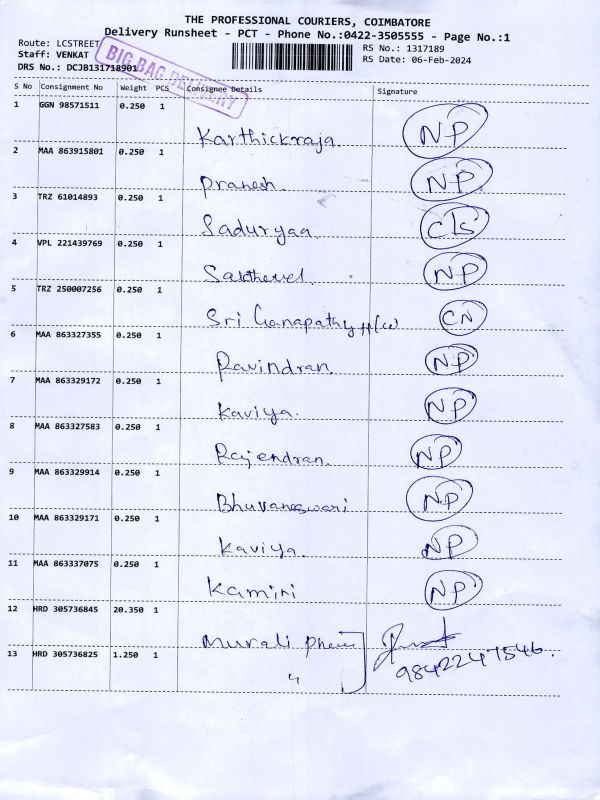 THE PROFESSIONAL COURIERS, COIMBATORE
Delivery Runsheet - PCT - Phone No.:0422-3505555 - Page No.:1
Route: LCSTREET
RS No.: 1317189
Staff: VENKAT
RS Date: 06-Feb-2024
DRS No.: DCJB131718901
BIG BAG DELIVERY
S No Consignment No Weight PCS Consignee Details Signature
1 GGN 98571511 0.250 1
Karthickraja NP
2 MAA 863915801 0.250 1
Pranesh NP
3 TRZ 61014893 0.250 1
Saduryaa
4 VPL 221439769 0.250 1
Sakthevel NP
5 TRZ 250007256 0.250 1
Sri Ganapathy H/W CN
6 MAA 863327355 0.250 1
Ravindran NP
7 MAA 863329172 0.250 1
Kaviya NP
8 MAA 863327583 0.250 1
Rajendran NP
9 MAA 863329914 0.250 1
Bhuvaneswari NP
10 MAA 863329171 0.250 1
Kaviya NP
11 MAA 863337075 0.250 1
Kamini NP
12 HRD 305736845 20.350 1
Murali
13 HRD 305736825 1.250 1
"